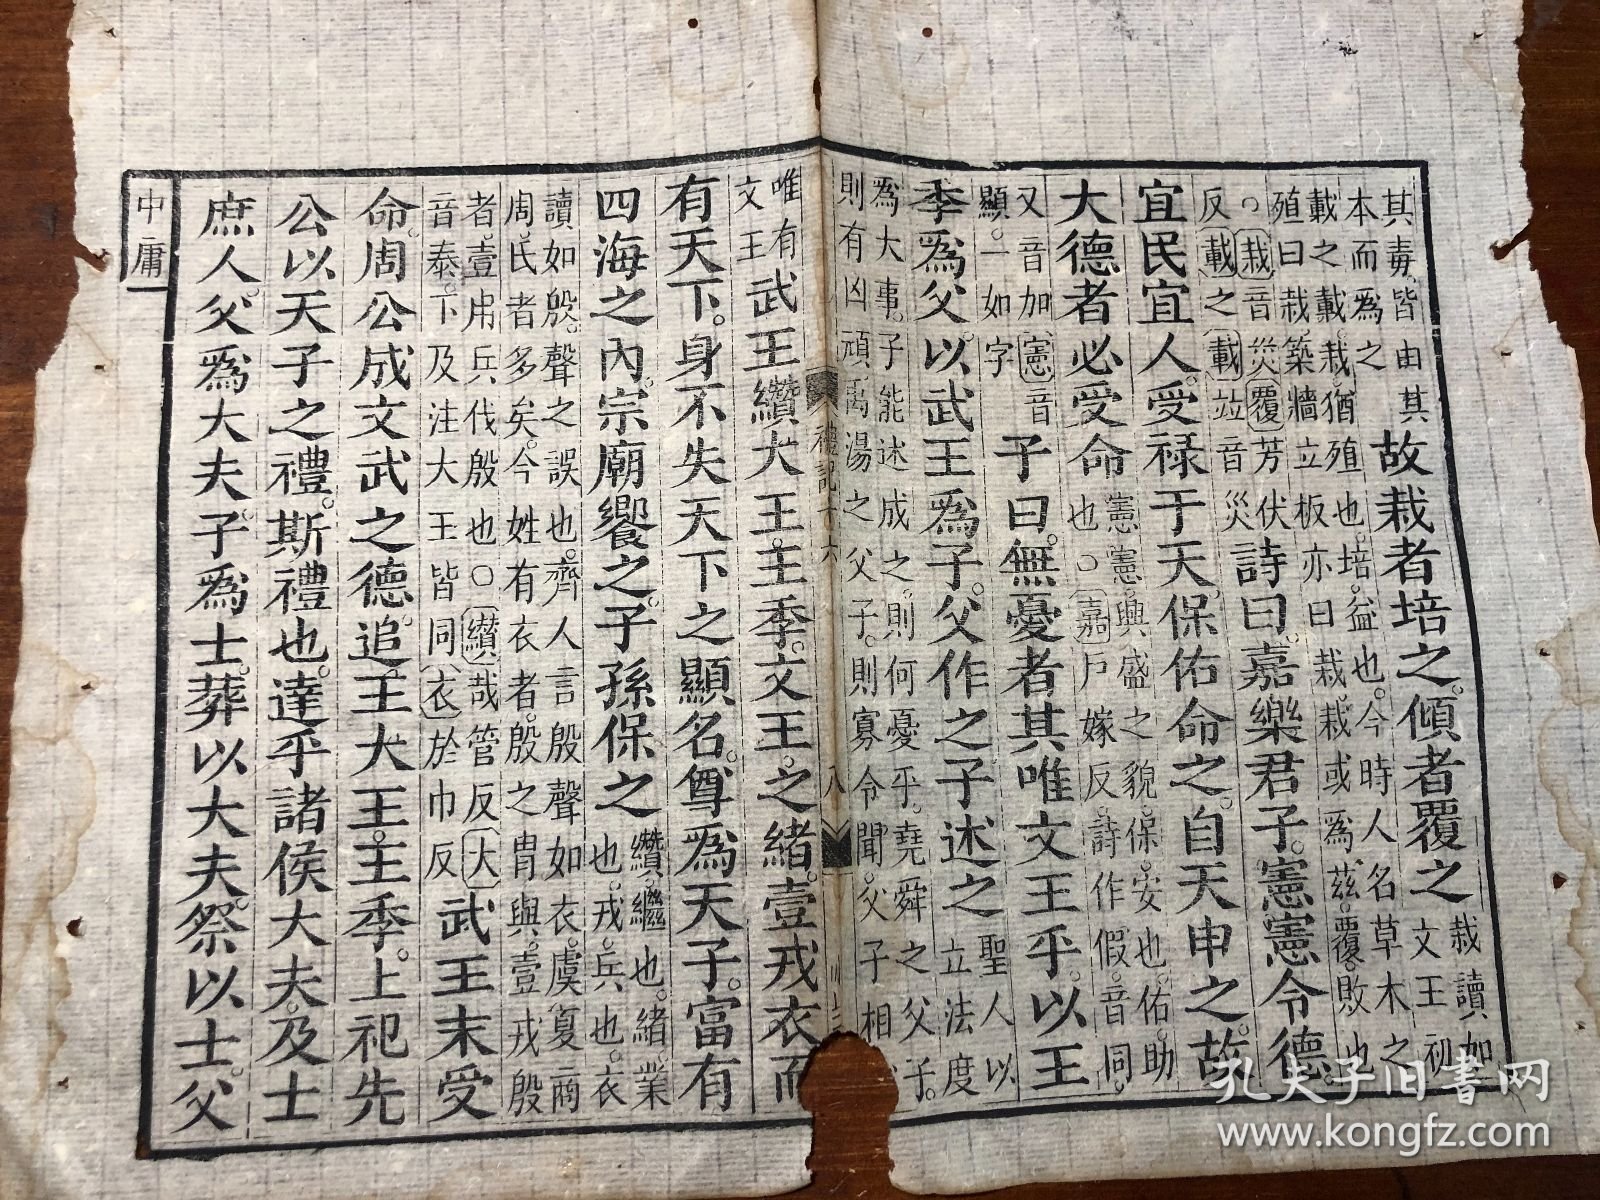 其毒皆由其
本而為之
故栽者培之。傾者覆之
栽讀如
文王初
載之載。栽猶殖也。培益也。今時人名草木之
殖曰栽。築牆立板亦曰栽。栽或為茲。覆。敗也
○栽音災覆芳伏
反載之載竝音災
詩曰。嘉樂君子。憲憲令德。
宜民宜人。受祿于天。保佑命之。自天申之。故
大德者必受命
憲憲。興盛之貌。保。安也。佑。助
也○嘉戶嫁反。詩作假。音同。
又音加憲音
顯。一如字
子曰。無憂者其唯文王乎。以王
季為父。以武王為子。父作之。子述之
聖人以
立法度
為大事。子能述成之。則何憂乎。堯舜之父子。
則有凶頑。禹湯之父子。則寡令聞。父子相
禮記十六
八
唯有
文王
武王纘大王王季。文王之緒。壹戎衣而
有天下。身不失天下之顯名。尊為天子。富有
四海之內。宗廟饗之。子孫保之
纘。繼也。緒。業
也。戎。兵也。衣
讀如殷。聲之誤也。齊人言殷聲如衣。虞夏商
周氏者多矣。今姓有衣者。殷之冑與。壹戎殷
者。壹用兵伐殷也○纘哉管反大
音泰。下及注大王皆同衣於巾反
武王末受
命。周公成文武之德。追王大王。王季。上祀先
公以天子之禮。斯禮也。達乎諸侯大夫。及士
庶人。父為大夫。子為士。葬以大夫。祭以士。父
中庸
孔夫子旧書网
www.kongfz.com